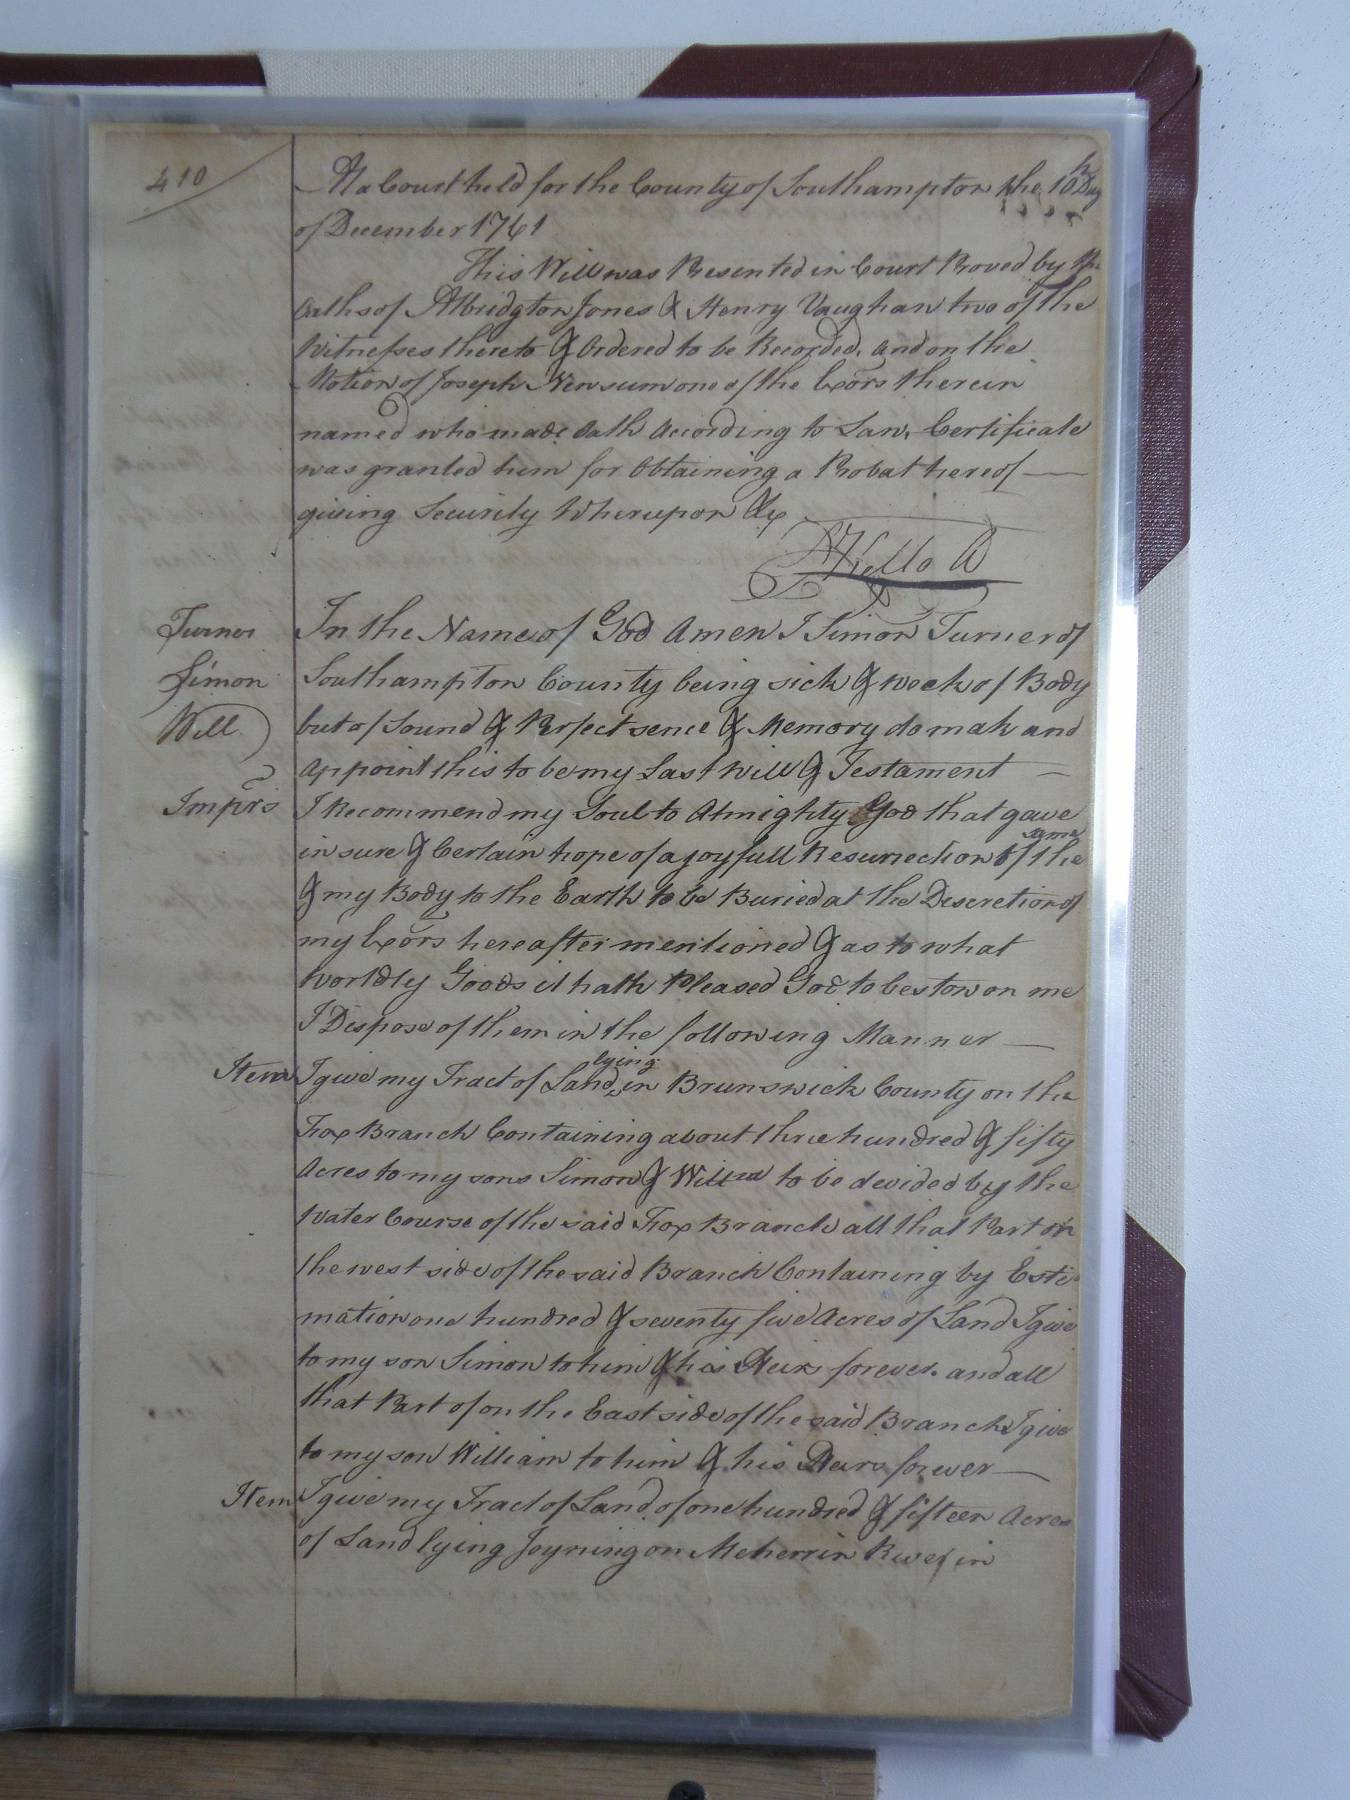 410
At a Court held for the County of Southampton the 10th Day
of December 1761
This Will was Presented in Court Proved by the
Oaths of Albridgton Jones & Henry Vaughan two of the
Witnesses thereto & Ordered to be Recorded. And on the
Motion of Joseph Newsum one of the Exõrs therein
named who made Oath According to Law, Certificate
was granted him for Obtaining a Probat thereof —
giving Security Whereupon &c
Kello
Turner
Simon
Will
In the Name of God Amen I Simon Turner of
Southampton County being sick & weck of Body
but of Sound & Perfect sence & Memory do mak and
Appoint this to be my Last Will & Testament —
Imprs
I Recommend my Soul to Almighty God that gave
in sure & Certain hope of a joyfull Resurrection of the same
& my Body to the Earth to be Buried at the Descretion of
my Exõrs hereafter mentioned & as to what
worldly Goods it hath Pleased God to bestow on me
I Dispose of them in the following Manner —
Item I give my Tract of Land lying in Brunswick County on the
Fox Branch Containing about three hundred & fifty
Acres to my sons Simon & Willm to be devided by the
Water Course of the said Fox Branch all that Part on
the west side of the said Branch Containing by Esti
mation one hundred & seventy five Acres of Land I give
to my son Simon to him & his Heirs forever. and all
that Part of on the East side of the said Branch I give
to my son William to him & his Heirs forever —
Item I give my Tract of Land of one hundred & fifteen Acres
of Land lying Joyning on Meherrin River in